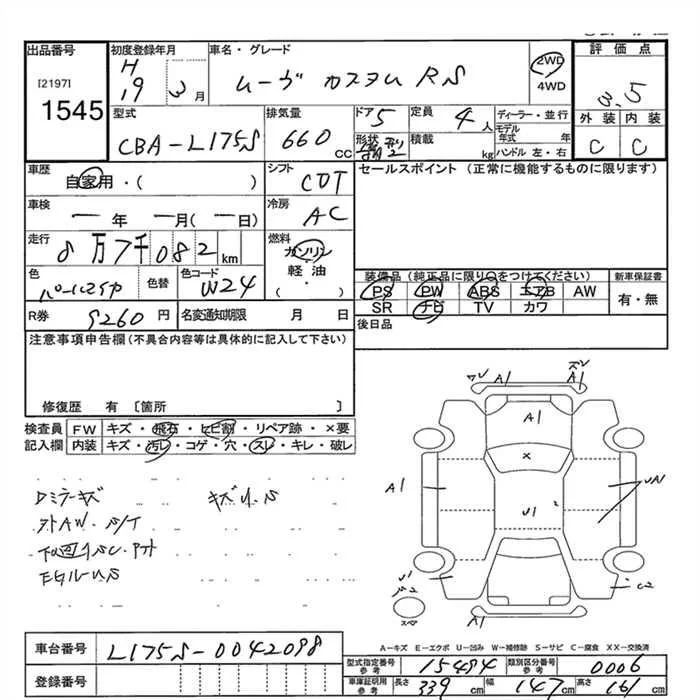 出品番号
[2197]
1545
初度登録年月
H
19 3 月
車名・グレード
ムーヴ カスタム RS
2WD
4WD
評価点
3.5
外装 内装
C C
型式
CBA-L175S
排気量
660 cc
ドア
5
形状
定員
4 人
積載
kg
ディーラー・並行
モデル年式 年
ハンドル 左・右
車歴
自家用・( )
シフト
CVT
セールスポイント (正常に機能するものに限ります)
車検
― 年 ― 月(― 日)
冷房
AC
走行
8 万 7 千 082 km
燃料
ガソリン
軽油
( ・ )
色
色替
色コード
W24
装備品(純正品に限り○をつけてください)
PS PW ABS エアB AW
SR ナビ TV カワ
新車保証書
有・無
R券 9260 円
名変通知期限 月 日
後日品
注意事項申告欄(不具合内容等は具体的に記入して下さい)
修復歴 有 〔箇所 〕
検査員記入欄
FW キズ・飛石・ヒビ割・リペア跡・×要
内装 キズ・汚レ・コゲ・穴・スレ・キレ・破レ
A1
A1
A1
×
A1
U1
C2
A1
A-キズ E-エクボ U-凹み W-補修跡 S-サビ C-腐食 XX-交換済
車台番号
L175S-0042098
登録番号
型式指定番号 参考
15494
類別区分番号 参考
0006
車庫証明用 参考
長さ 339 cm 幅 147 cm 高さ 161 cm